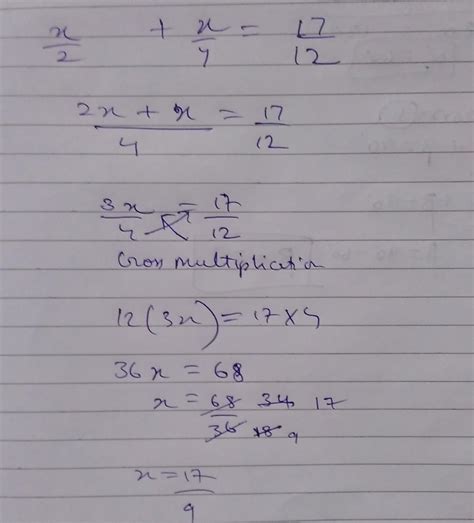 x/2 + x/4 = 17/12
2x + x/4 = 17/12
3x/4 = 17/12
Cross multiplication
12(3x) = 17x4
36x = 68
x = 68/36 34/18 17/9
x = 17/9